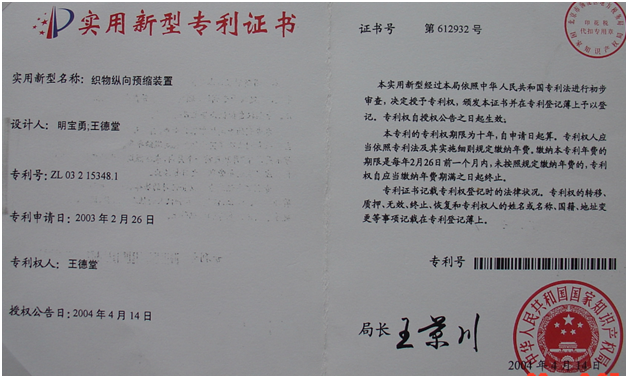 实用新型专利证书
实用新型名称：织物纵向预缩装置
设计人：明宝勇;王德堂
专利号：ZL 03 2 15348.1
专利申请日：2003 年 2 月 26 日
专利权人：王德堂
授权公告日：2004 年 4 月 14 日
证书号 第 612932 号
印花税
代扣专用章
国家知识产权局
本实用新型经过本局依照中华人民共和国专利法进行初步
审查，决定授予专利权，颁发本证书并在专利登记薄上予以登
记。专利权自授权公告之日起生效。
本专利的专利权期限为十年，自申请日起算。专利权人应
当依照专利法及其实施细则规定缴纳年费。缴纳本专利年费的
期限是每年2月26日前一个月内，未按照规定缴纳年费的，专利
权自应当缴纳年费期满之日起终止。
专利证书记载专利权登记时的法律状况。专利权的转移、
质押、无效、终止、恢复和专利权人的姓名或名称、国籍、地址变
更等事项记载在专利登记薄上。
专利号
局长 王景川
中华人民共和国国家知识产权局
2004 年 4 月 14 日